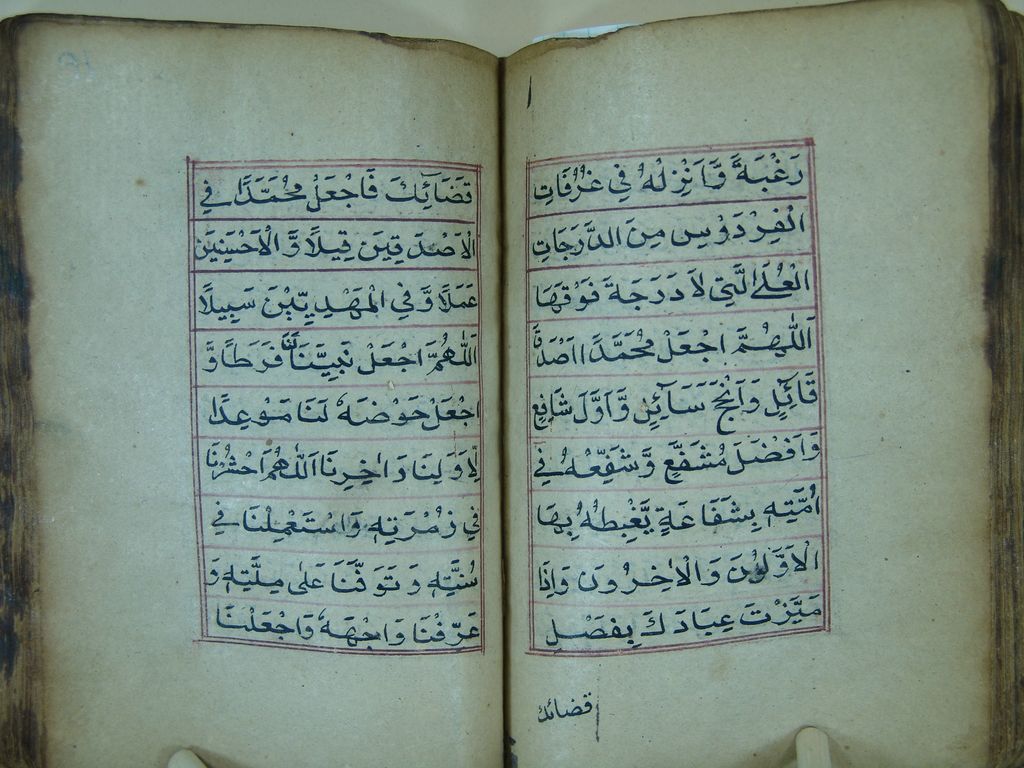 رَغْبَةً وَّاَنْزِلْهُ فِي غُرُفَاتِ
الْفِرْدَوْسِ مِنَ الدَّرَجَاتِ
الْعُلَى الَّتِي لَا دَرَجَةَ فَوْقَهَا
اَللّٰهُمَّ اجْعَلْ مُحَمَّدًا اَصْدَقَ
قَائِلٍ وَاَنْجَحَ سَآئِلٍ وَّاَوَّلَ شَافِعٍ
وَاَفْضَلَ مُشَفَّعٍ وَّشَفِّعْهُ فِي
اُمَّتِهٖ بِشَفَاعَةٍ يَّغْبِطُهُ بِهَا
الْاَوَّلُوْنَ وَالْاٰخِرُوْنَ وَاِذَا
مَيَّزْتَ عِبَادَكَ بِفَصْلِ
قضائك
قَضَآئِكَ فَاجْعَلْ مُحَمَّدًا فِي
الْاَصْدَقِيْنَ قِيْلًا وَّالْاَحْسَنِيْنَ
عَمَلًا وَّفِي الْمَهْدِيِّيْنَ سَبِيْلًا
اَللّٰهُمَّ اجْعَلْ نَبِيَّنَا لَنَا فَرَطًا وَّ
اجْعَلْ حَوْضَهٗ لَنَا مَوْعِدًا
لِاَوَّلِنَا وَاٰخِرِنَا اَللّٰهُمَّ احْشُرْنَا
فِي زُمْرَتِهٖ وَاسْتَعْمِلْنَا فِي
سُنَّتِهٖ وَتَوَفَّنَا عَلٰى مِلَّتِهٖ وَ
عَرِّفْنَا وَجْهَهٗ وَاجْعَلْنَا